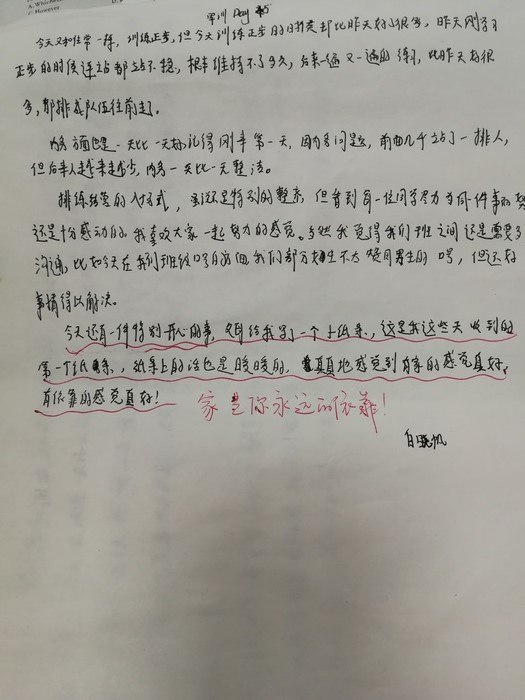 A. Which
C. However
军训 Day 5
今天又和往常一样，训练正步，但今天训练正步的时候却比昨天好了很多，昨天刚学习
正步的时候连站都站不稳，根本维持不了多久，后来一遍又一遍的练习，比昨天好很
多，都排成队伍往前走了。
内务方面也是一天比一天好，记得刚来第一天，因为内务问题，前面几乎站了一排人，
但后来人越来越少，内务一天比一天整洁。
排练结营的入场式，虽说还是特别的整齐，但看到每一位同学尽力为同一件事而努
还是十分感动的，我喜欢大家一起努力的感觉。当然我觉得我们班之间还是需要多
沟通，比如今天在我们班级口号方面，我们部分女生不太赞同男生的口号，但还好
事情得以解决。
今天还有一件特别开心的事，给我写了一个小纸条，这是我这些天收到的
第一个纸条，纸条上的话也是暖暖的，真真地感觉到有家的感觉真好，
有依靠的感觉真好！
家是你永远的依靠！
白晓帆